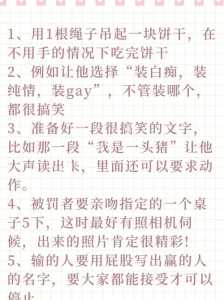 1、用1根绳子吊起一块饼干，在
不用手的情况下吃完饼干
2、例如让他选择“装白痴，装
纯情，装gay”，不管装哪个，
都很搞笑
3、准备好一段很搞笑的文字，
比如那一段“我是一头猪”让他
大声读出 k，里面还可以要求动
作。
4、被罚者要亲吻指定的一个桌
子5下，这时最好有照相机伺
候，出来的照片肯定很精彩!
5、输的人要用屁股写出赢的人
的名字，要大家都能接受才可以
停止